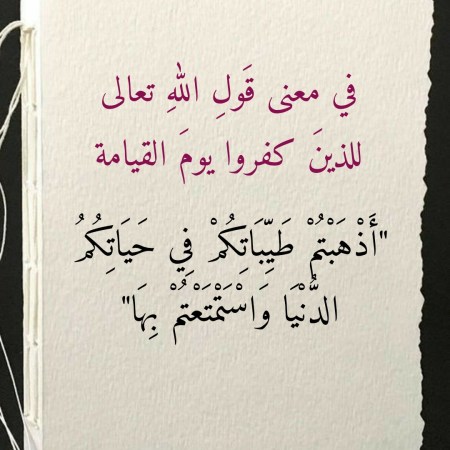 في معنى قَولِ اللهِ تعالى
للذينَ كفروا يومَ القيامة
"أَذْهَبْتُمْ طَيِّبَاتِكُمْ فِي حَيَاتِكُمُ
الدُّنْيَا وَاسْتَمْتَعْتُمْ بِهَا"